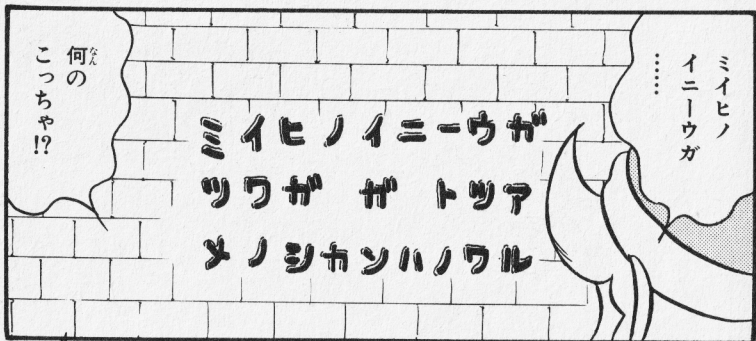 ミイヒノ
イニーウガ
……
ミイヒノイニーウガ
ツワガ ガ トツア
メノシカンハノワル
何の
なん
こっちゃ!?